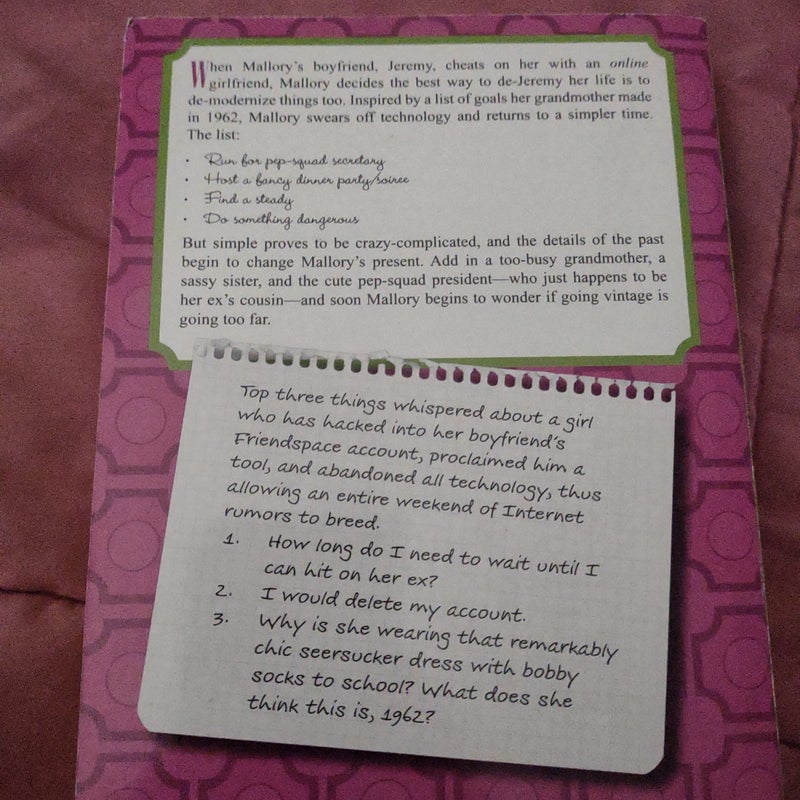 When Mallory's boyfriend, Jeremy, cheats on her with an online
girlfriend, Mallory decides the best way to de-Jeremy her life is to
de-modernize things too. Inspired by a list of goals her grandmother made
in 1962, Mallory swears off technology and returns to a simpler time.
The list:
• Run for pep-squad secretary
• Host a fancy dinner party/soiree
• Find a steady
• Do something dangerous
But simple proves to be crazy-complicated, and the details of the past
begin to change Mallory's present. Add in a too-busy grandmother, a
sassy sister, and the cute pep-squad president—who just happens to be
her ex's cousin—and soon Mallory begins to wonder if going vintage is
going too far.
Top three things whispered about a girl
who has hacked into her boyfriend's
Friendspace account, proclaimed him a
tool, and abandoned all technology, thus
allowing an entire weekend of Internet
rumors to breed.
1. How long do I need to wait until I
can hit on her ex?
2. I would delete my account.
3. Why is she wearing that remarkably
chic seersucker dress with bobby
socks to school? What does she
think this is, 1962?